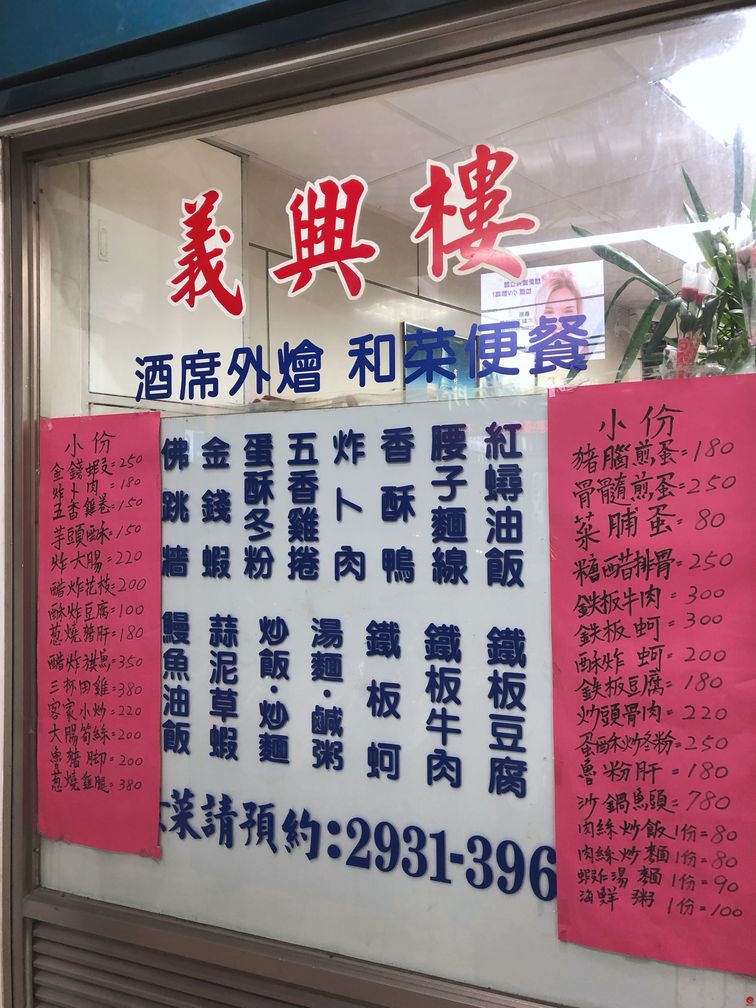 義興樓
酒席外燴 和菜便餐
小份
金錢蝦=250
炸卜肉=180
五香雞卷=150
芋頭酥=150
炸大腸=220
醋炸花枝=200
酥炸豆腐=100
蔥燒豬肝=180
醋炸魚=350
三杯田雞=380
客家小炒=220
大腸筍絲=200
魯豬腳=200
蔥燒雞腿=380
紅蟳油飯
腰子麵線
香酥鴨
炸卜肉
五香雞捲
蛋酥冬粉
金錢蝦
佛跳牆
鐵板豆腐
鐵板牛肉
鐵板蚵
湯麵・鹹粥
炒飯・炒麵
蒜泥草蝦
鰻魚油飯
菜請預約:2931-396
小份
豬腦煎蛋=180
骨髓煎蛋=250
菜脯蛋=80
糖醋排骨=250
鉄板牛肉=300
鉄板蚵=300
酥炸蚵=200
鉄板豆腐=180
炒頭骨肉=220
蛋酥炒冬粉=250
魯粉肝=180
沙鍋魚頭=780
肉絲炒飯1份=80
肉絲炒麵1份=80
蝦仁湯麵1份=90
海鮮粥1份=100